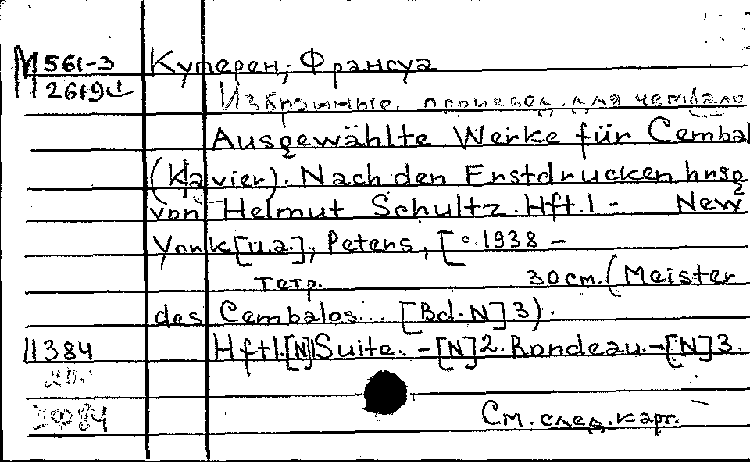 М 561-3 Куперен, Франсуа
2619
Избранные произвед. для чембало
Ausgewählte Werke für Cembal
(Klavier). Nach den Erstdrucken hrsg
von Helmut Schultz. Hft.1 - New
York [u.a.], Peters, [c.1938 -
тетр. 30 cm. (Meister
des Cembalos... [Bd. N] 3).
11384 Hft1.[N] Suite. - [N] 2. Rondeau. - [N] 3.
См. след. карт.